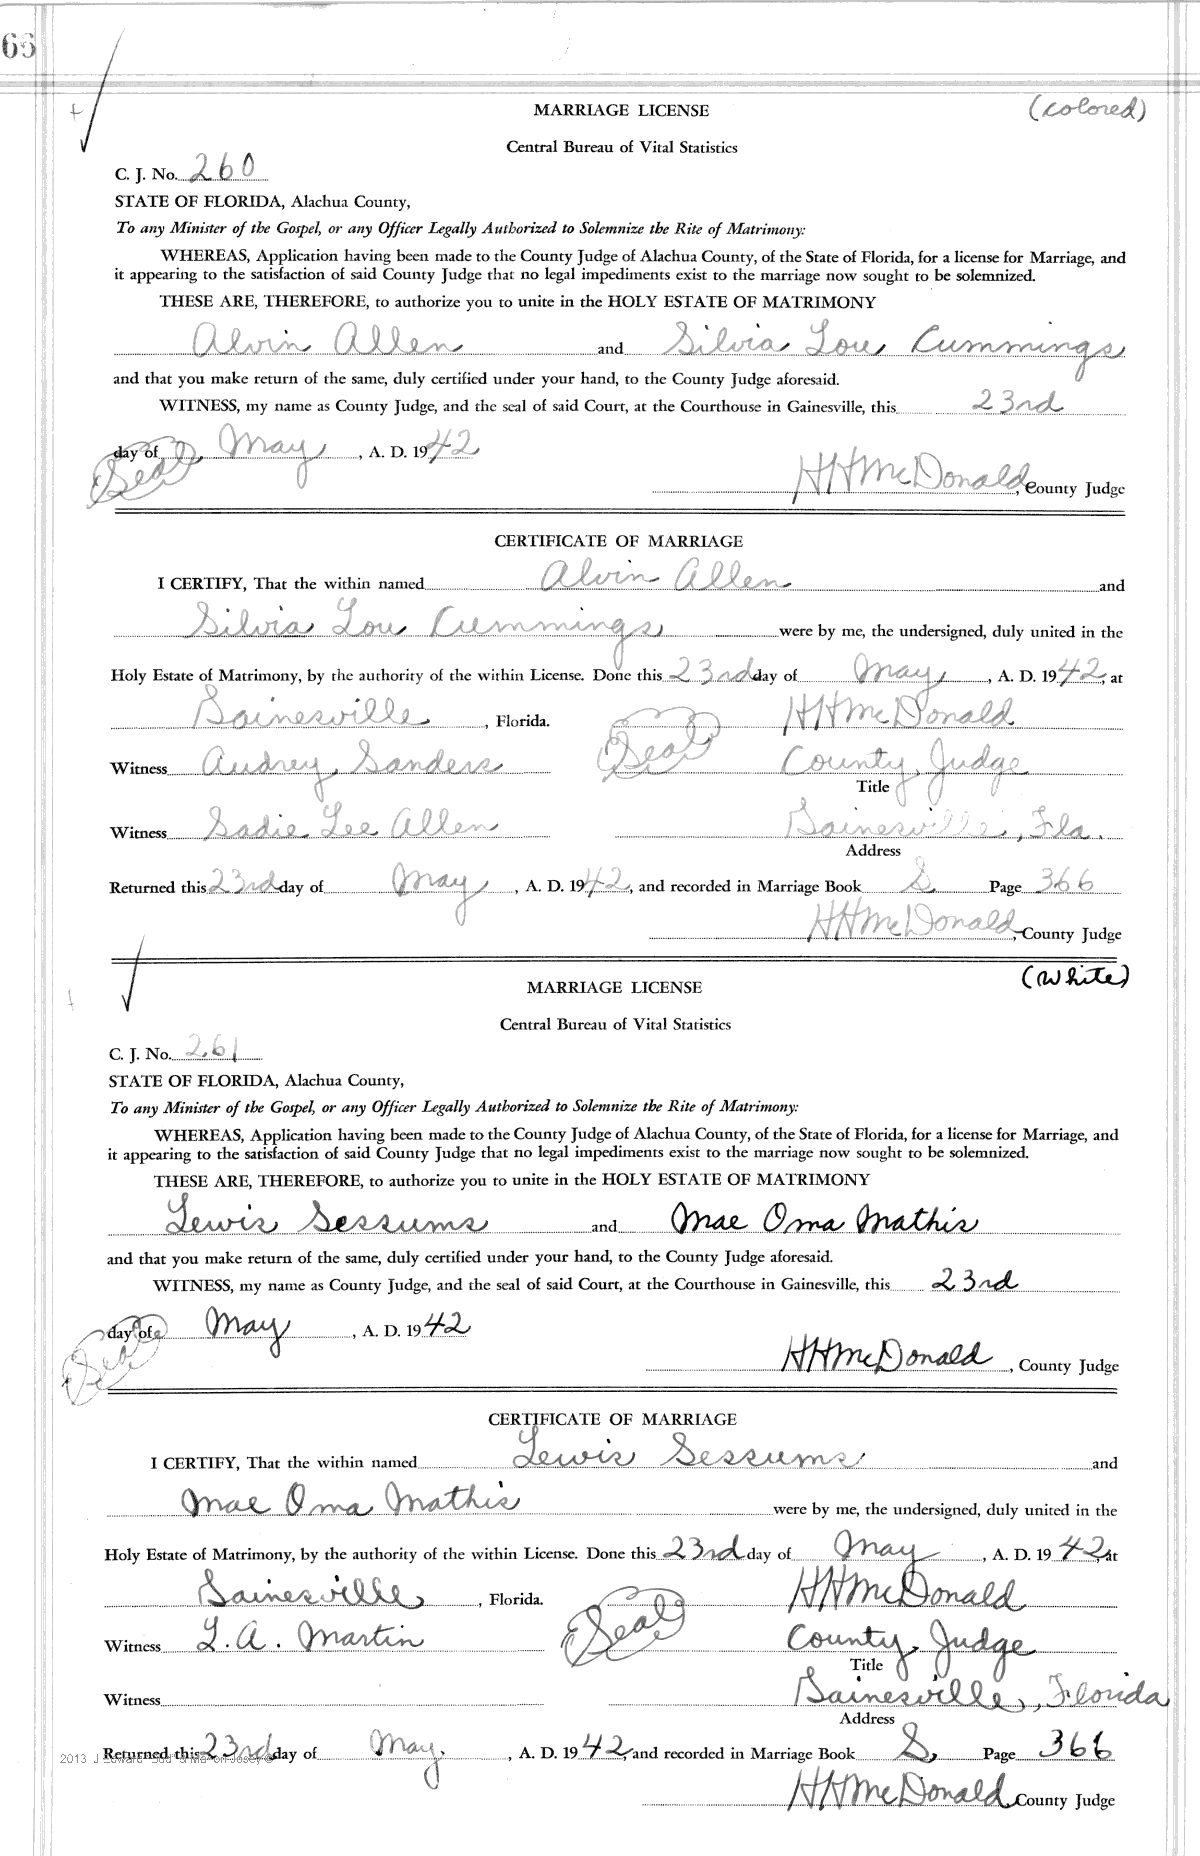 66
(colored)
MARRIAGE LICENSE
Central Bureau of Vital Statistics
C. J. No. 260
STATE OF FLORIDA, Alachua County,
To any Minister of the Gospel, or any Officer Legally Authorized to Solemnize the Rite of Matrimony:
WHEREAS, Application having been made to the County Judge of Alachua County, of the State of Florida, for a license for Marriage, and
it appearing to the satisfaction of said County Judge that no legal impediments exist to the marriage now sought to be solemnized.
THESE ARE, THEREFORE, to authorize you to unite in the HOLY ESTATE OF MATRIMONY
Alvin Allen and Silvia Lou Cummings
and that you make return of the same, duly certified under your hand, to the County Judge aforesaid.
WITNESS, my name as County Judge, and the seal of said Court, at the Courthouse in Gainesville, this 23rd
day of May, A. D. 1942
(Seal) HHMcDonald, County Judge
CERTIFICATE OF MARRIAGE
I CERTIFY, That the within named Alvin Allen and
Silvia Lou Cummings were by me, the undersigned, duly united in the
Holy Estate of Matrimony, by the authority of the within License. Done this 23rd day of May, A. D. 1942, at
Gainesville, Florida. (Seal) HHMcDonald
Witness Audrey Sanders County Judge
Title
Witness Sadie Lee Allen Gainesville, Fla.
Address
Returned this 23rd day of May, A. D. 1942, and recorded in Marriage Book S Page 366
HHMcDonald, County Judge
(White)
MARRIAGE LICENSE
Central Bureau of Vital Statistics
C. J. No. 261
STATE OF FLORIDA, Alachua County,
To any Minister of the Gospel, or any Officer Legally Authorized to Solemnize the Rite of Matrimony:
WHEREAS, Application having been made to the County Judge of Alachua County, of the State of Florida, for a license for Marriage, and
it appearing to the satisfaction of said County Judge that no legal impediments exist to the marriage now sought to be solemnized.
THESE ARE, THEREFORE, to authorize you to unite in the HOLY ESTATE OF MATRIMONY
Lewis Sessums and Mae Oma Mathis
and that you make return of the same, duly certified under your hand, to the County Judge aforesaid.
WITNESS, my name as County Judge, and the seal of said Court, at the Courthouse in Gainesville, this 23rd
day of May, A. D. 1942
(Seal) HHMcDonald, County Judge
CERTIFICATE OF MARRIAGE
I CERTIFY, That the within named Lewis Sessums and
Mae Oma Mathis were by me, the undersigned, duly united in the
Holy Estate of Matrimony, by the authority of the within License. Done this 23rd day of May, A. D. 1942, at
Gainesville, Florida. (Seal) HHMcDonald
Witness L. A. Martin County Judge
Title
Witness Gainesville, Florida
Address
2013 J Edward
Returned this 23rd day of May, A. D. 1942, and recorded in Marriage Book S, Page 366
HHMcDonald, County Judge